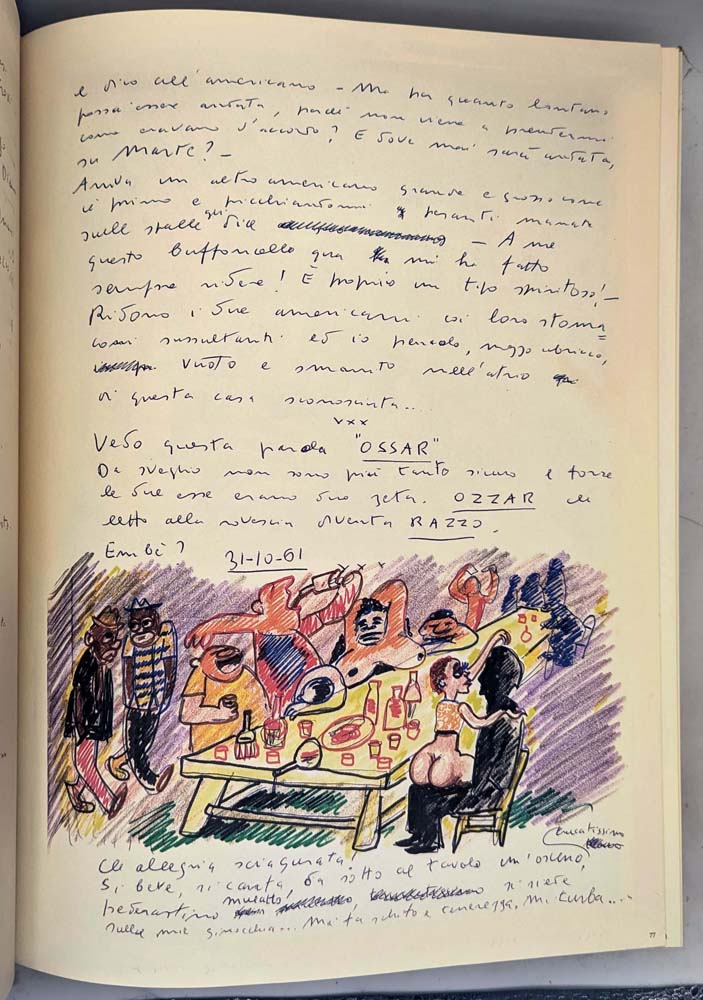 e dico all'americano – Ma ha quanto lontano
possa essere andata, perché non viene a prendermi
come eravamo d'accordo? E dove mai sarà andata,
su Marte? –
Arriva un altro americano grande e grosso come
il primo e picchiandomi pesanti manate
sulle spalle dice – A me
questo buffoncello qua mi ha fatto
sempre ridere! È proprio un tipo spiritoso! –
Ridono i due americani coi loro stoma=
coni sussultanti ed io piccolo, mezzo ubriaco,
vuoto e smarrito nell'atrio
di questa casa sconosciuta...
xxx
Vedo questa parola "OSSAR"
Da sveglio non sono più tanto sicuro e forse
le due esse erano due zeta. OZZAR che
letto alla rovescia diventa RAZZO.
Embè?
31-10-61
xxx
Che allegria sciagurata!
Si beve, si canta, da sotto al tavolo un'osceno,
truccatissimo
pederastino mulatto, si siede
sulle mie ginocchia... Mi fa schifo e tenerezza. Mi turba....
77